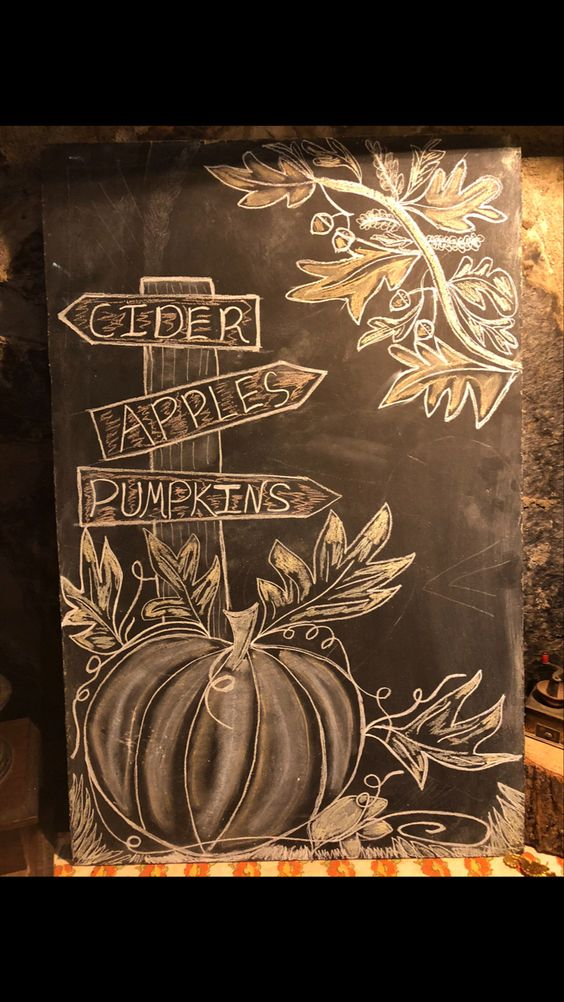 CIDER
APPLES
PUMPKINS